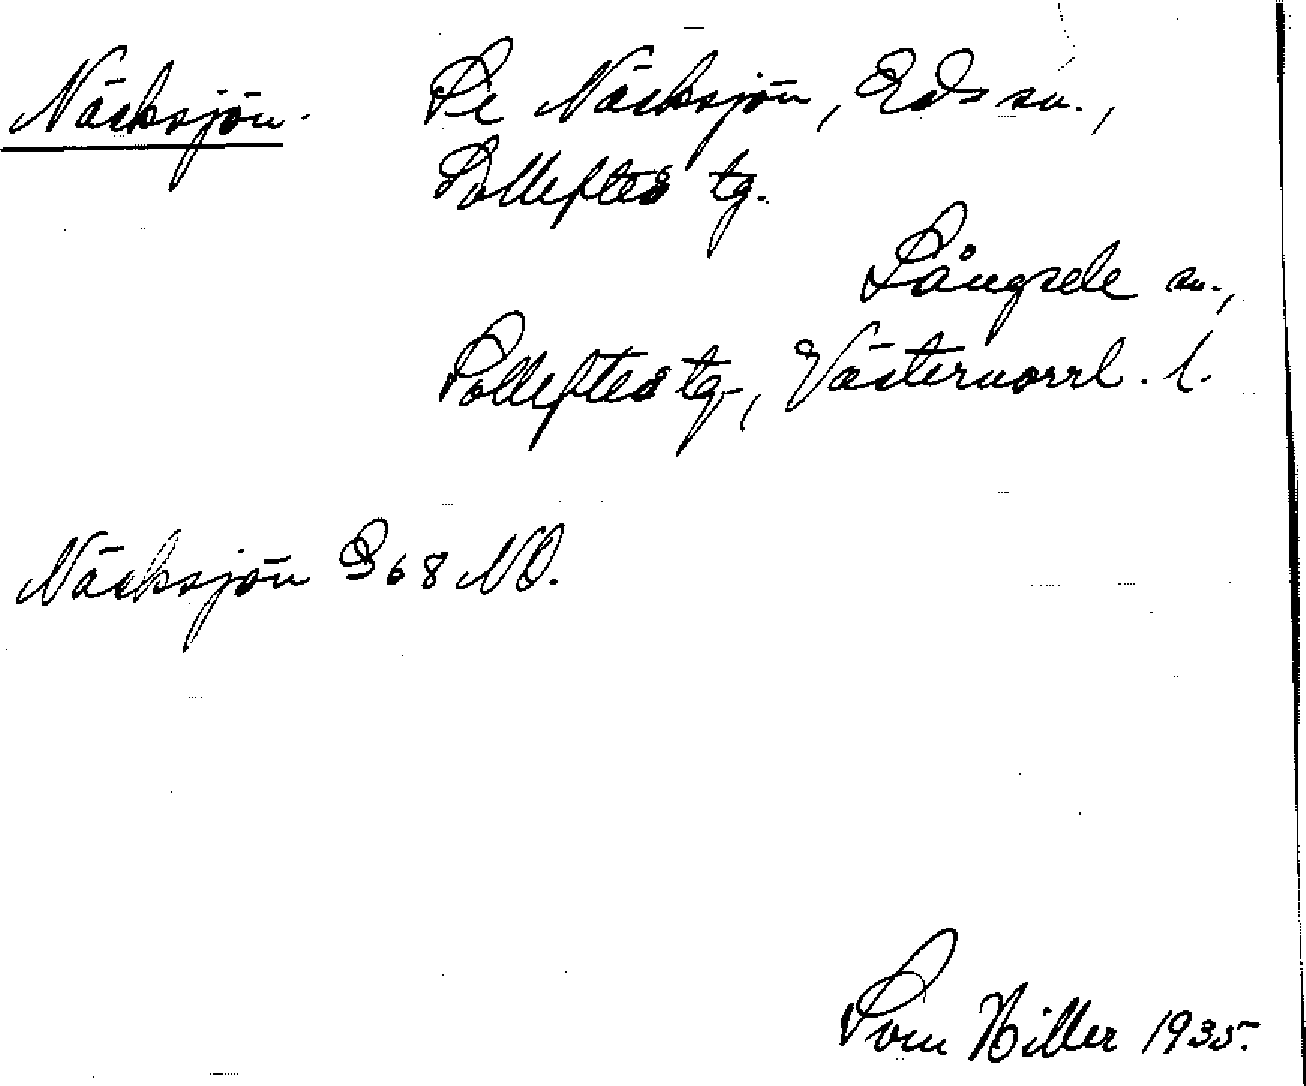 Näcksjön.
Se Näcksjön, Eds sn.,
Sollefteå tg.
Långsele sn.,
Sollefteå tg., Västernorrl. l.
Näcksjön G 68 NO.
Sven Hiller 1935.